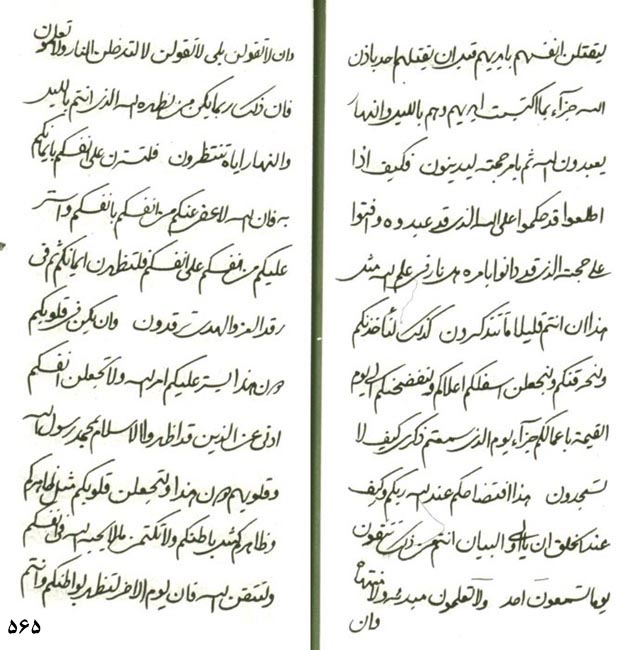 ليقتلن انفسهم بايديهم قبل ان يقتلهم احد باذن
الله جزآء بما اكتسبت ايديهم وهم بالليل والنهار
يعبدون الله ثم بامر حجته ليدينون فكيف اذا
اطلعوا قد حكموا على الله الذى قد عبدوه وافتوا
على حجته الذى قد دانوا بامره من نار فى علم الله مثل
هذا ان انتم قليلا ما تتذكرون كذلك لنأخذنكم
ولنحرقنكم ولنجعلن اسفلكم اعلاكم ولنفضحنكم الى يوم
القيمة باعمالكم جزآء يوم الذى سمعتم ذكرى كيف لا
تسجدون هذا افتضاحكم عند الله ربكم وكيف
عند الخلق ان يا اولى البيان انتم من ذلك تتقون
يوما تسمعون احد ولا تعلمون مبدئه ولا منتهاه
وان
وان لا تقولن بلى لا تقولن لا لتدخلن النار ولا تعلمون
فان ذلك ربما يكن من يظهره الله الذى انتم بالليل
والنهار اياه تنتظرون فلتسترن على انفسكم بايمانكم
به فان الله لا عفى عنكم من انفسكم بانفسكم واستر
عليكم من انفسكم على انفسكم فلتظهرن ايمانكم ثم فى
رقد العز والهدى ترقدون وان يكن فى قلوبكم
دون هذا ايستر عليكم امر الله ولا تجعلن انفسكم
ادنى عن الذين قد اظهروا الاسلام بمحمد رسول الله
وقلوبهم دون هذا ولتجعلن قلوبكم مثل ظاهركم
وظاهركم مثل باطنكم ولا تكتمن ما لا يحبه الله فى انفسكم
ولتتقن الله فان يوم الاخر لتظهر بواطنكم وانتم
۵۶۵